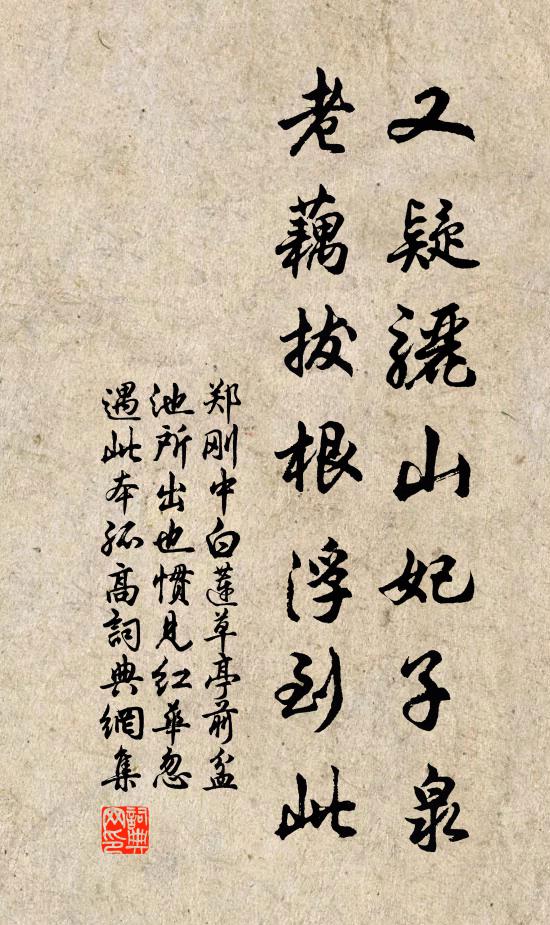 又疑骊山妃子泉
老藕拔根浮到此
郑刚中白莲草亭前盆
池所出也惯见红华忽
遇此本孤高詞典網集
詞典
网印